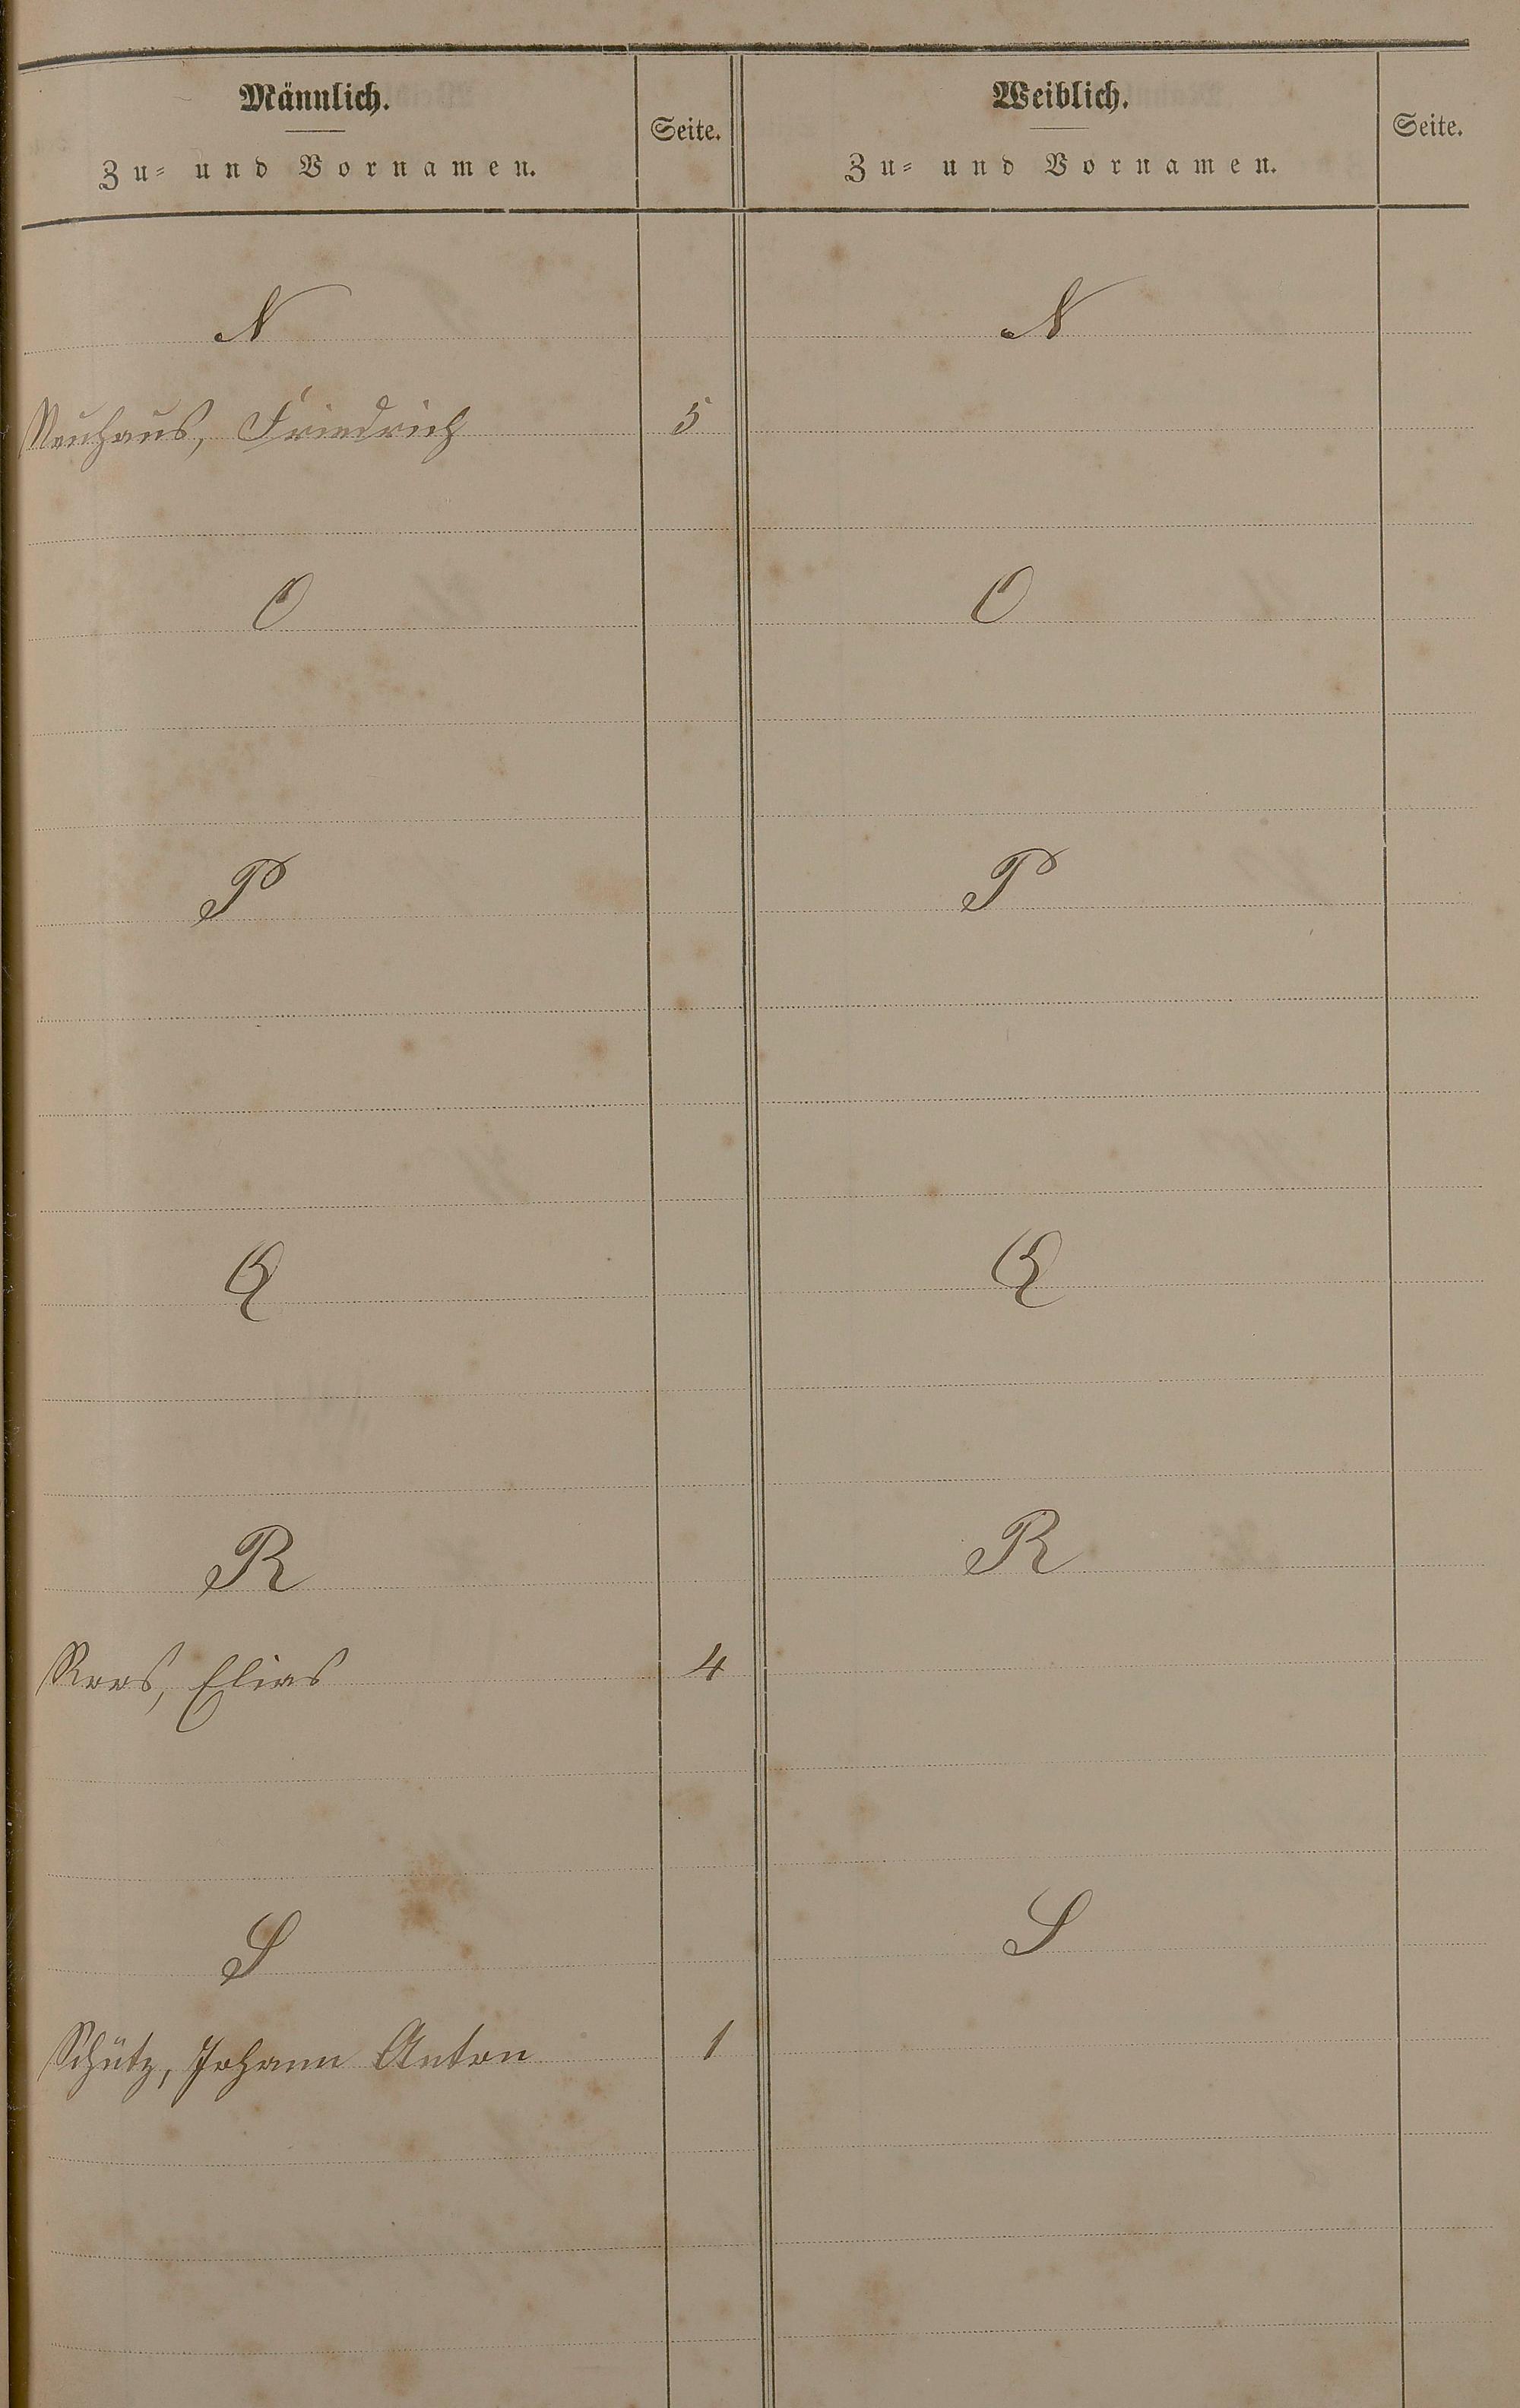 Männlich.
Zu- und Vornamen.
Seite.
Weiblich.
Zu- und Vornamen.
Seite.
N N
Neuhaus, Friedrich 5
O O
P P
Q Q
R R
Roos, Elias 4
S S
Schütz, Johann Anton 1